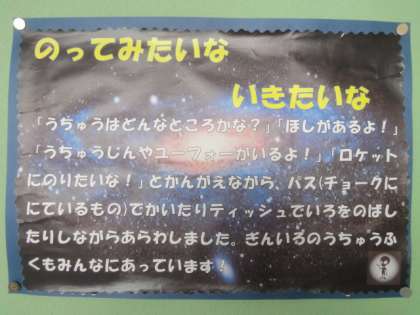 のってみたいな
いきたいな
「うちゅうはどんなところかな？」「ほしがあるよ！」
「うちゅうじんやユーフォーがいるよ！」「ロケット
にのりたいな！」とかんがえながら、パス(チョークに
にているもの)でかいたりティッシュでいろをのばし
たりしながらあらわしました。ぎんいろのうちゅうふ
くもみんなにあっています！